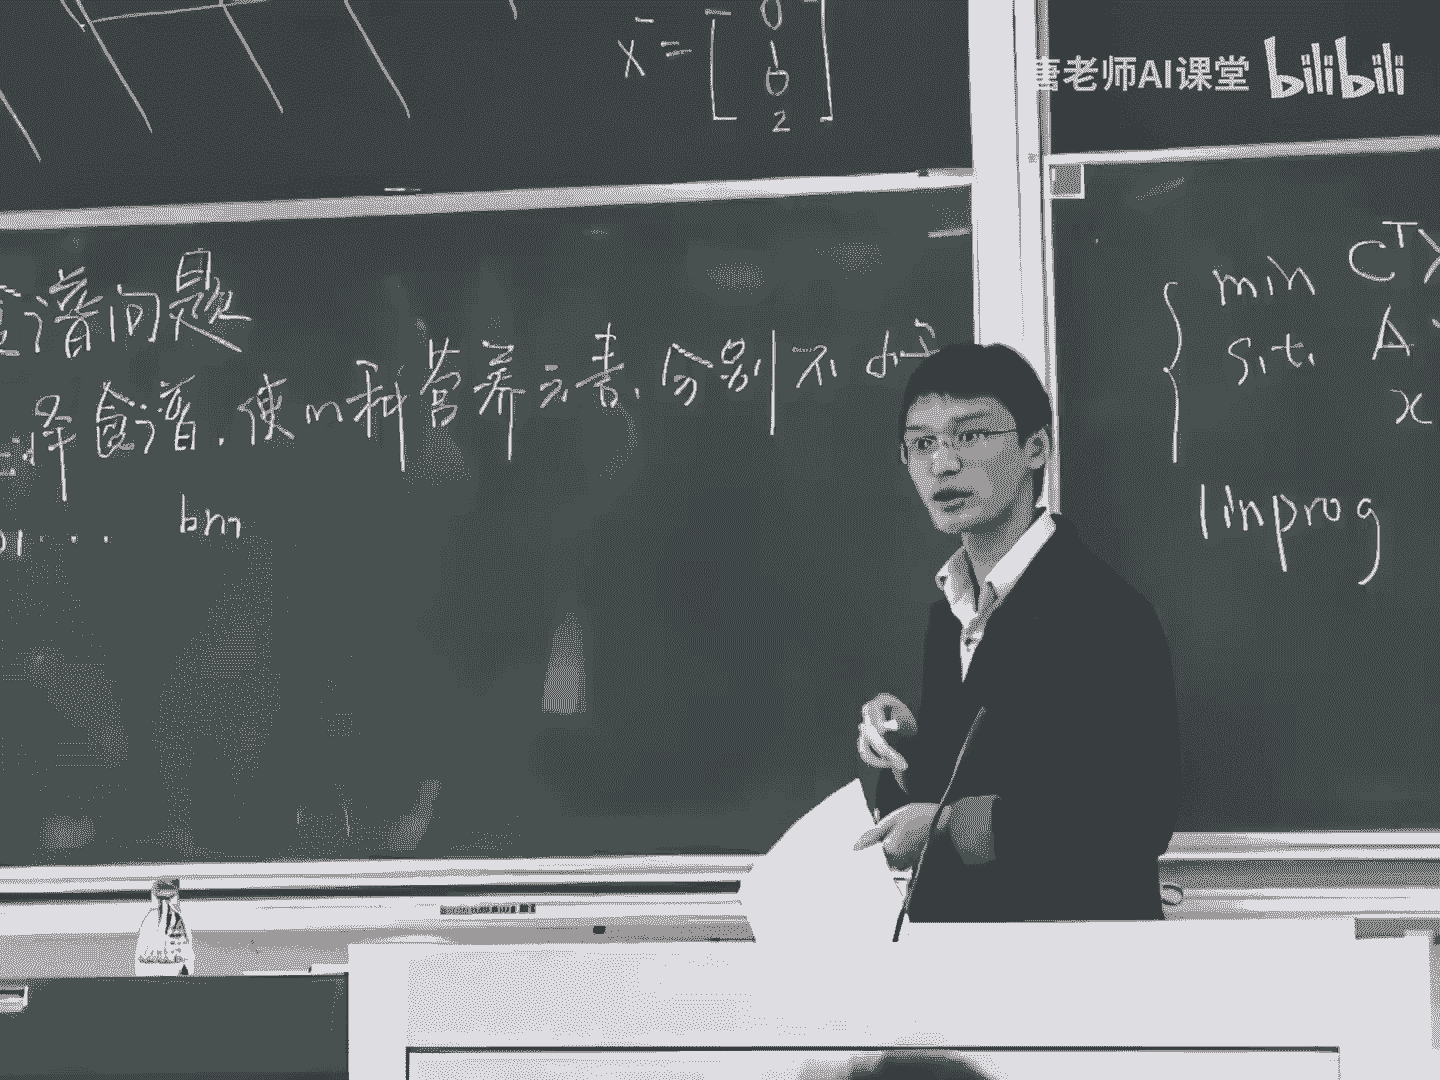 x̄ = [0 1 0 2]
唐老师AI课堂 bilibili
食谱问题
择食谱.使m种营养元素,分别不
b1 ... bm
min CᵀX
s.t. A
x
linprog